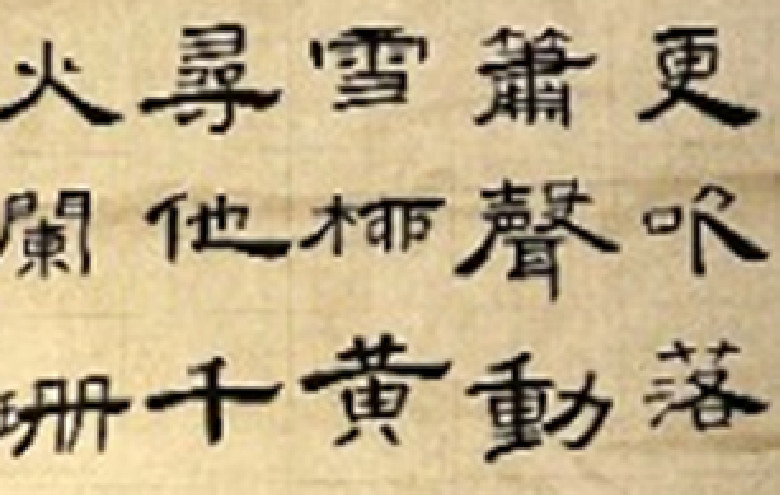 更吹落
簫聲動
雪柳黄
尋他千
火闌珊